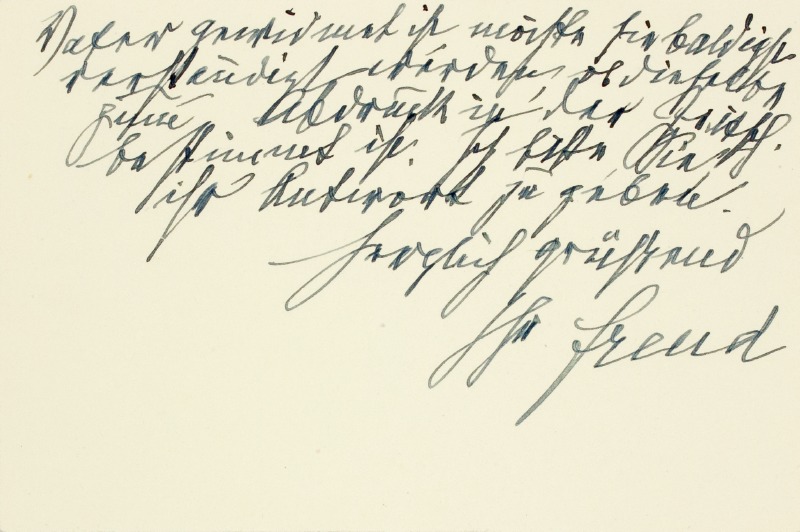 Vater gewidmet ist möchte sie baldigst
verständigt werden, ob dieselbe
zum Abdruck in der
bestimmt ist. Ich bitte Sie
ihr Antwort zu geben.
Herzlich grüßend
Ihr Freud